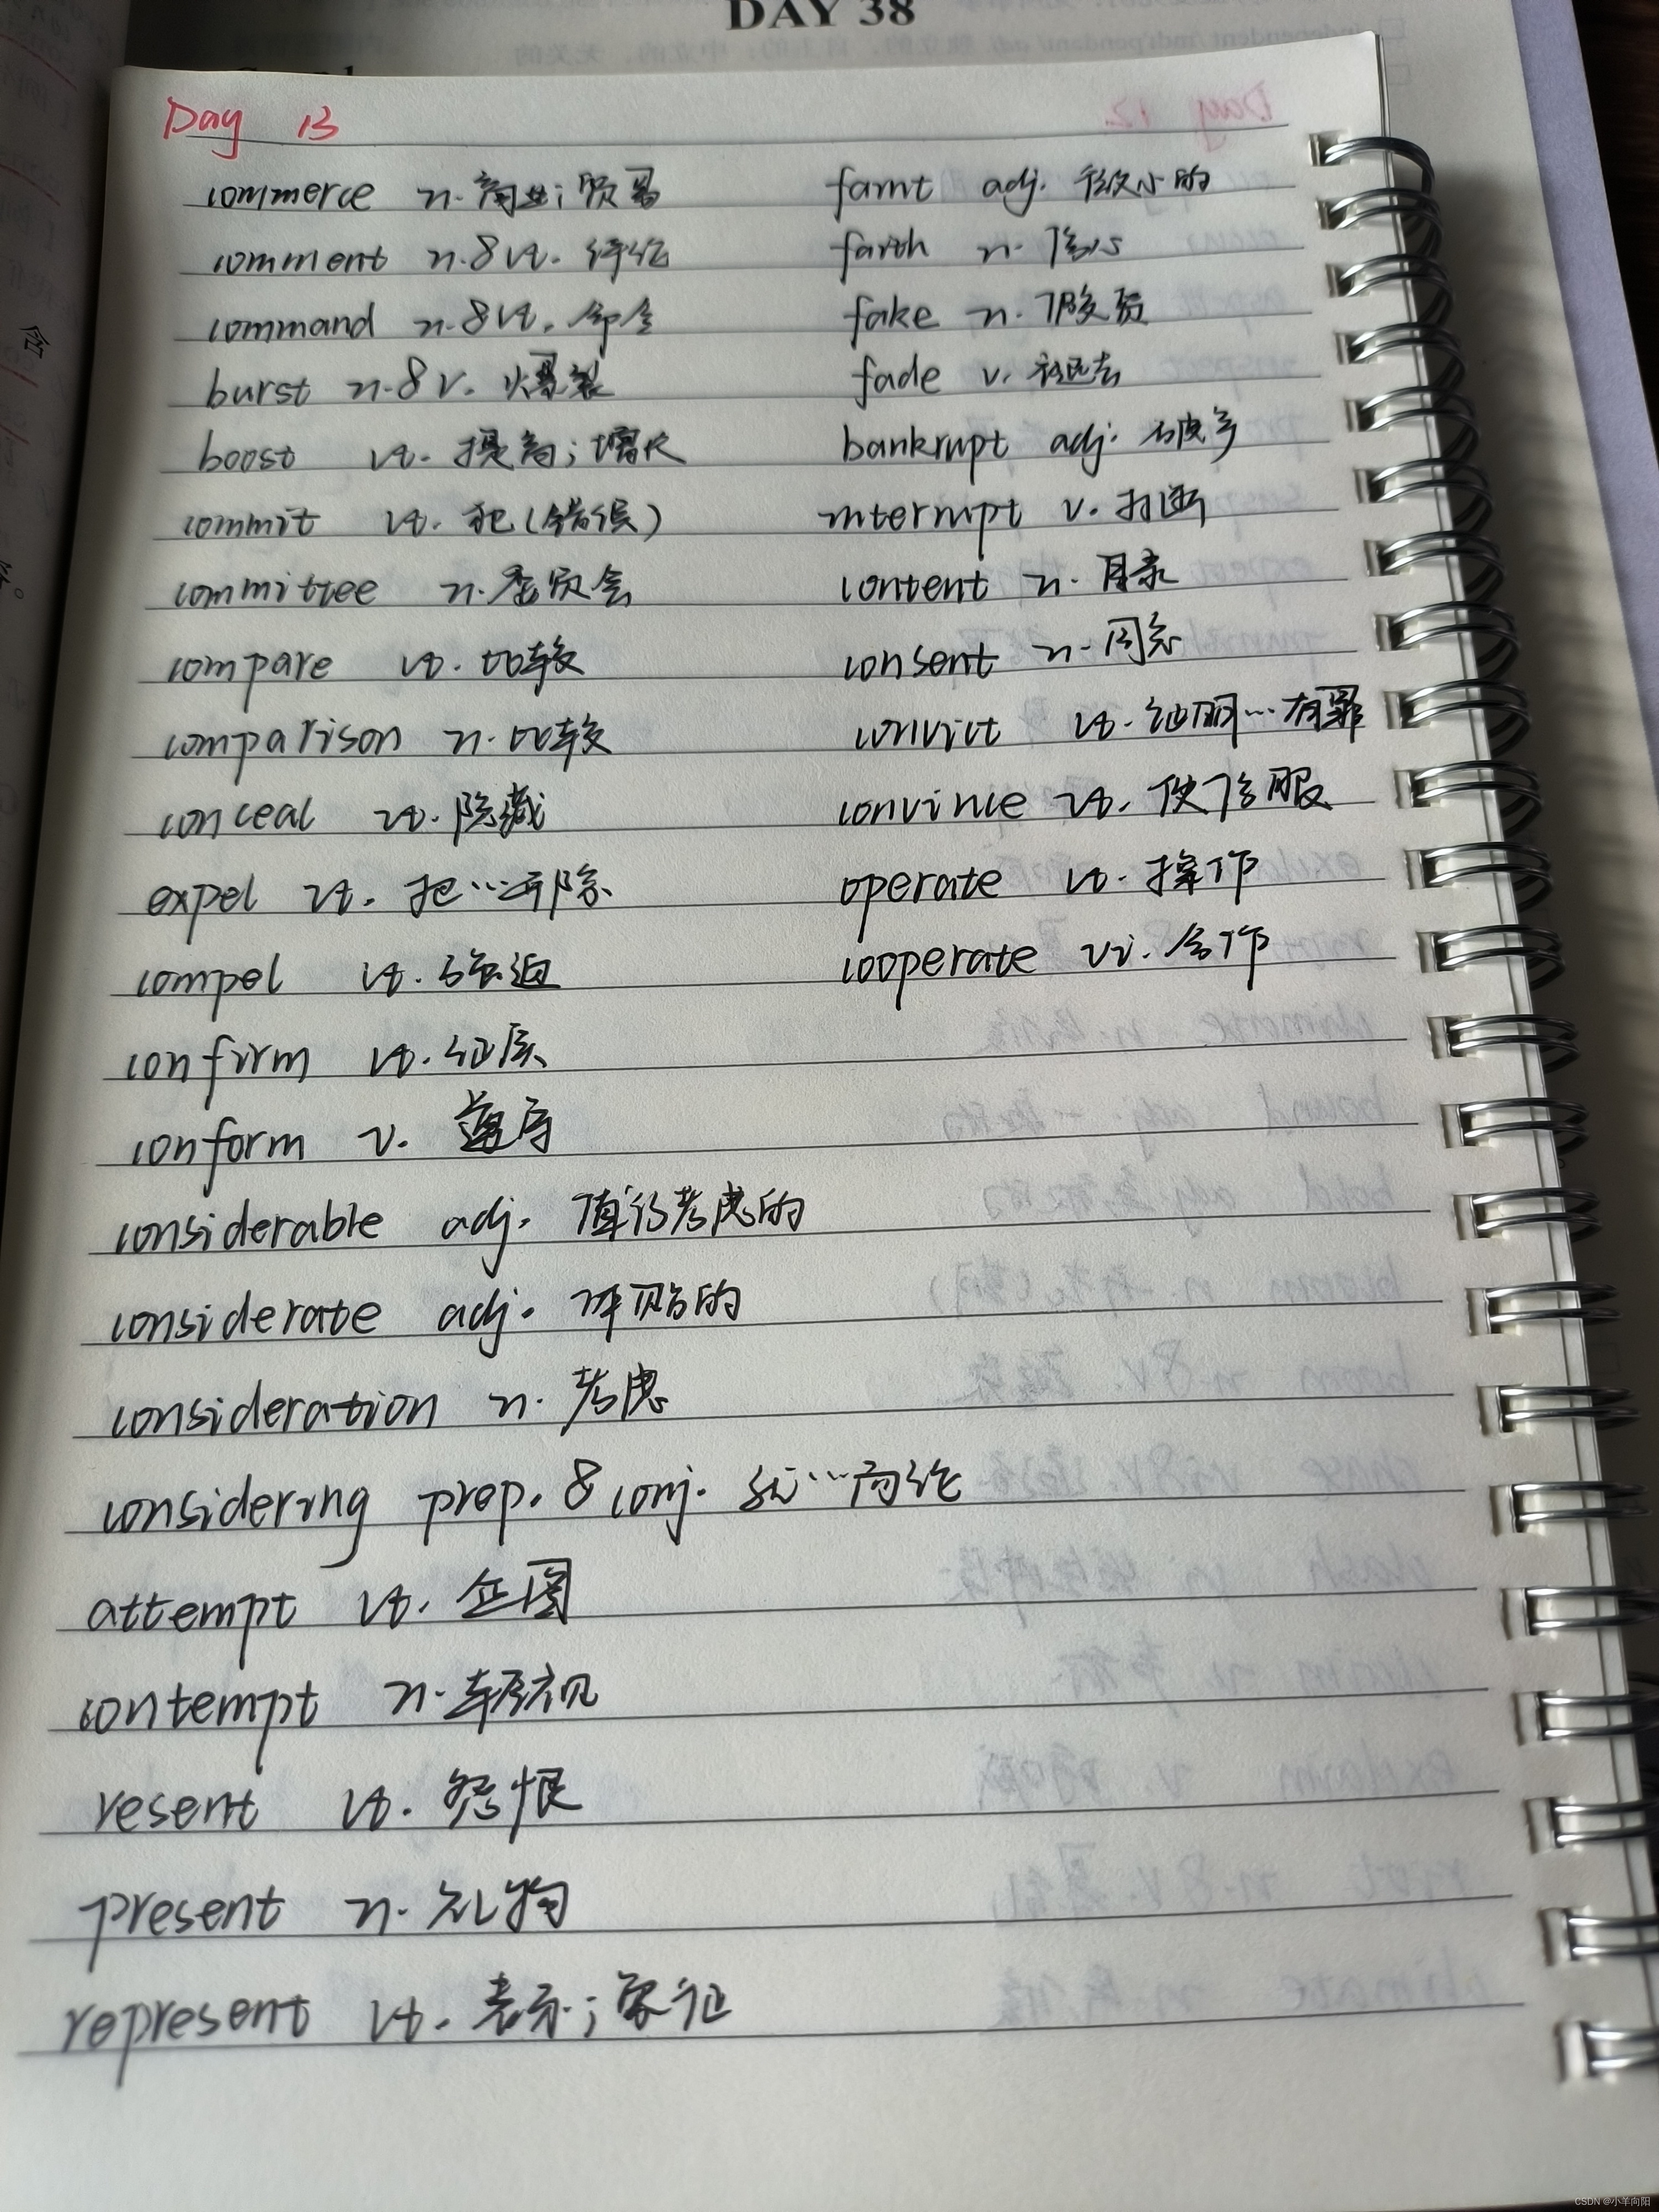 DAY 38
Day 13
commerce n. 商业; 贸易
comment n.&vt. 评论
command n.&vt. 命令
burst n.&v. 爆裂
boost vt. 提高; 增长
commit vt. 犯(错误)
committee n. 委员会
compare vt. 比较
comparison n. 比较
conceal vt. 隐藏
expel vt. 把…开除
compel vt. 强迫
confirm vt. 证实
conform v. 遵守
considerable adj. 值得考虑的
considerate adj. 体贴的
consideration n. 考虑
considering prep. & conj. 就…而论
attempt vt. 企图
contempt n. 轻视
resent vt. 怨恨
present n. 礼物
represent vt. 表示; 象征
faint adj. 微小的
faith n. 信心
fake n. 假货
fade v. 褪去
bankrupt adj. 破产
interrupt v. 打断
content n. 目录
consent n. 同意
convict vt. 证明…有罪
convince vt. 使信服
operate vt. 操作
cooperate vi. 合作
CSDN @小羊向阳